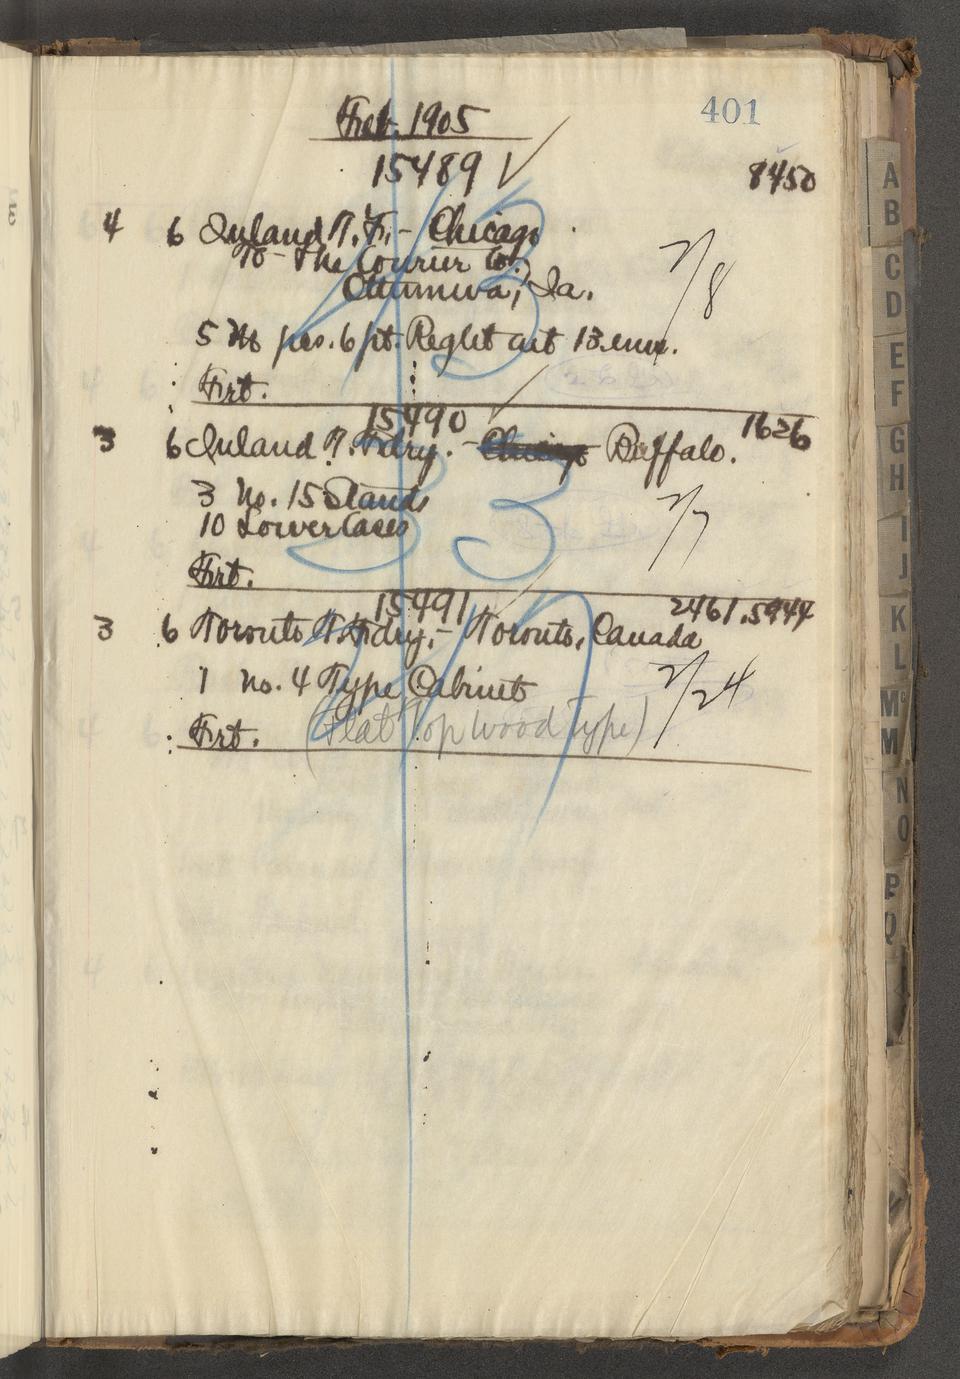 401
Feb. 1905
15489 ✓
8450
4 6 Inland T. F. - Chicago
To - The Courier Co.,
Ottumwa, Ia.
2/8
5 M pcs. 6 pt. Reglet cut 13 ems.
Frt.
15490
1626
3 6 Inland T. Fdry. - Chicago Buffalo.
3 No. 15 Stands
10 Lower Cases
2/7
Frt.
15491
2461.5944
3 6 Toronto T. Fdry. - Toronto, Canada
1 No. 4 Type Cabinet
2/24
Frt. (Flat Top Wood Type)
A
B
C
D
E
F
G
H
I
J
K
L
Mc
M
N
O
P
Q